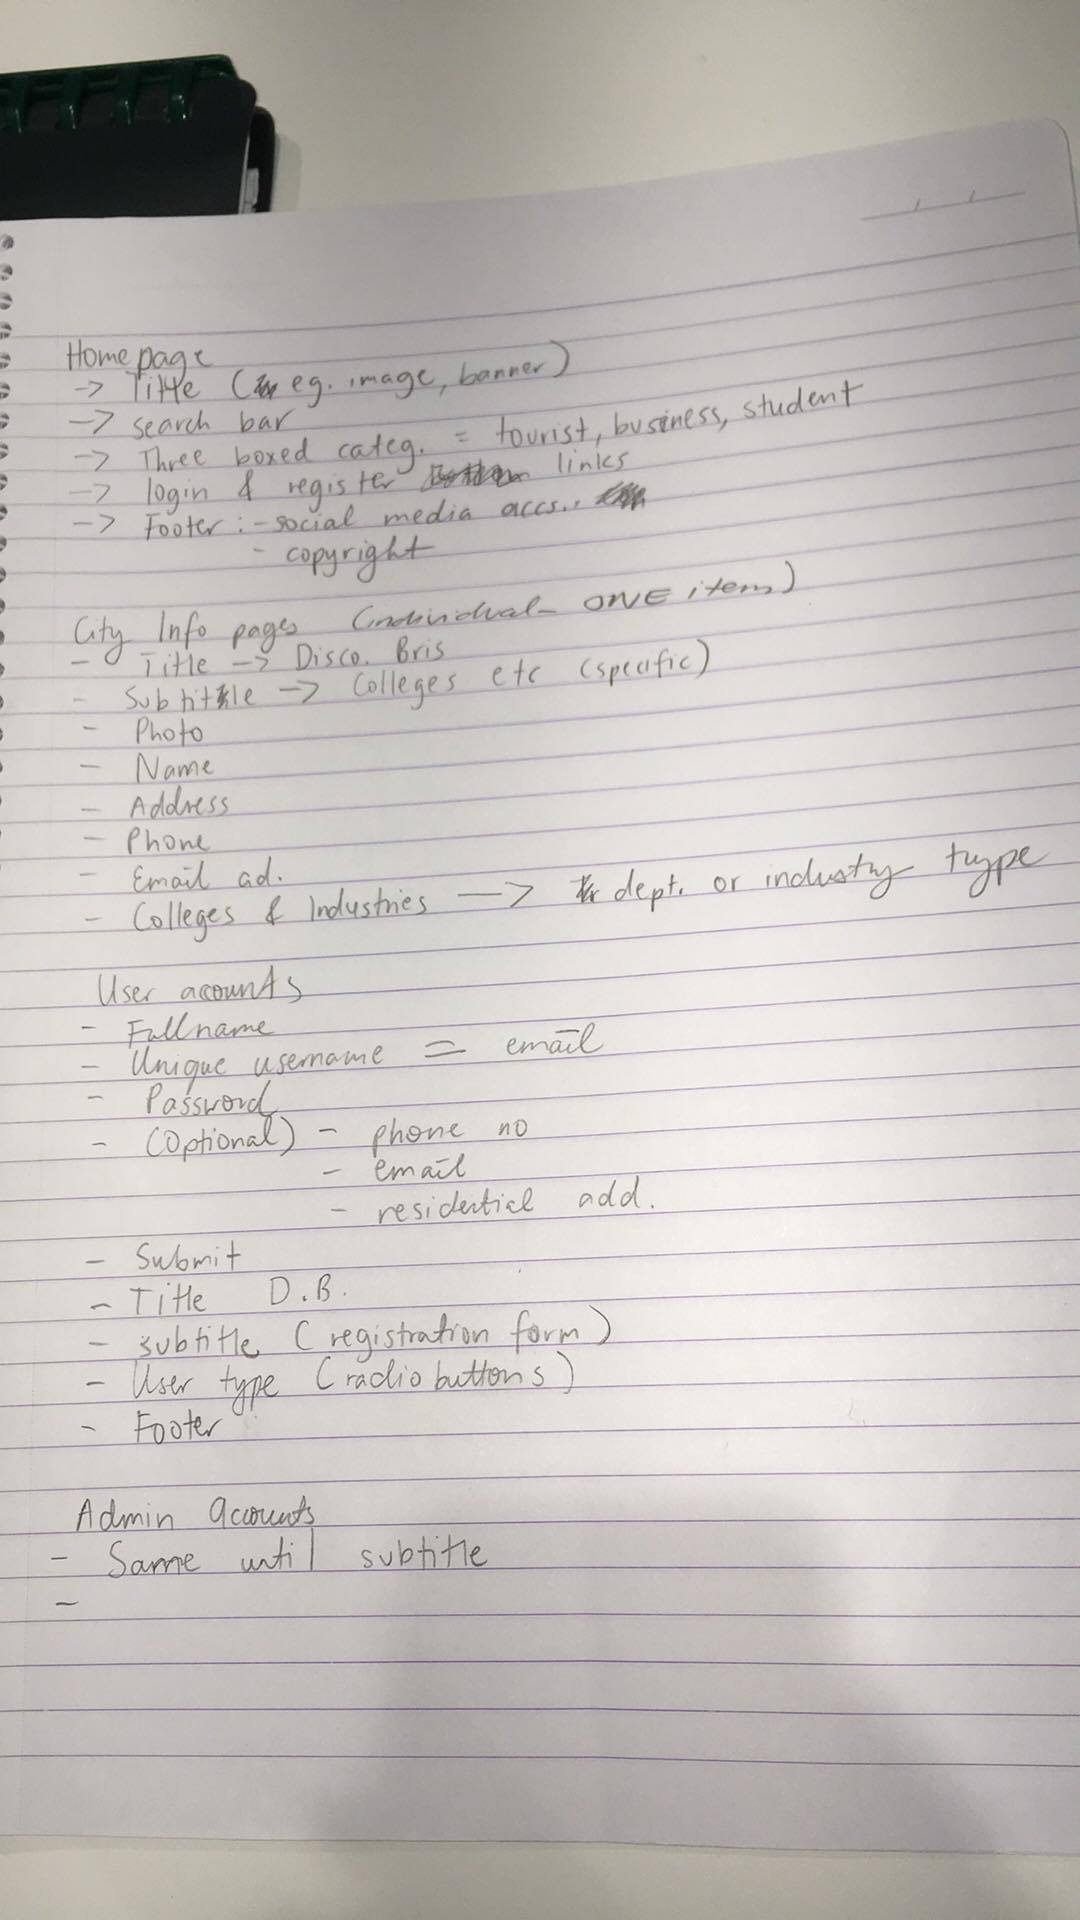 Home page
-> Title (eg. image, banner)
-> search bar
-> Three boxed categ. = tourist, business, student
-> login & register links
-> Footer : - social media accs..
- copyright
City Info pages (individual - ONE item)
- Title -> Disco. Bris
- Subtitle -> Colleges etc (specific)
- Photo
- Name
- Address
- Phone
- Email ad.
- Colleges & Industries -> dept. or industry type
User acounts
- Fullname
- Unique username = email
- Password
- (Optional) - phone no
- email
- residential add.
- Submit
- Title D.B.
- subtitle (registration form)
- User type (radio buttons)
- Footer
Admin acounts
- Same until subtitle
-